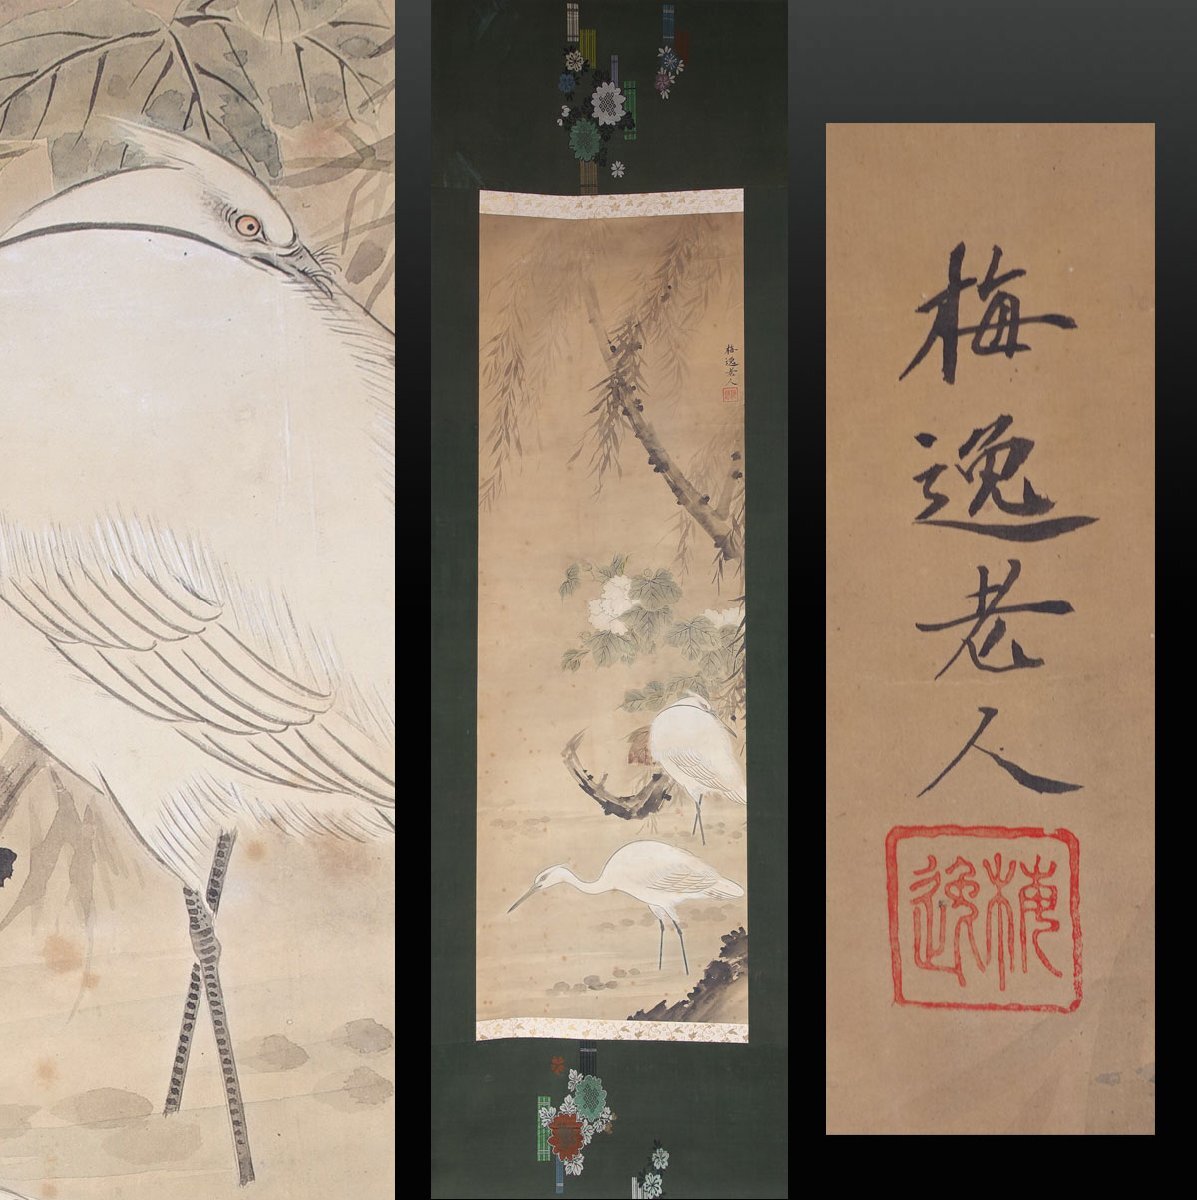 梅逸老人
梅逸
梅逸老人
梅逸